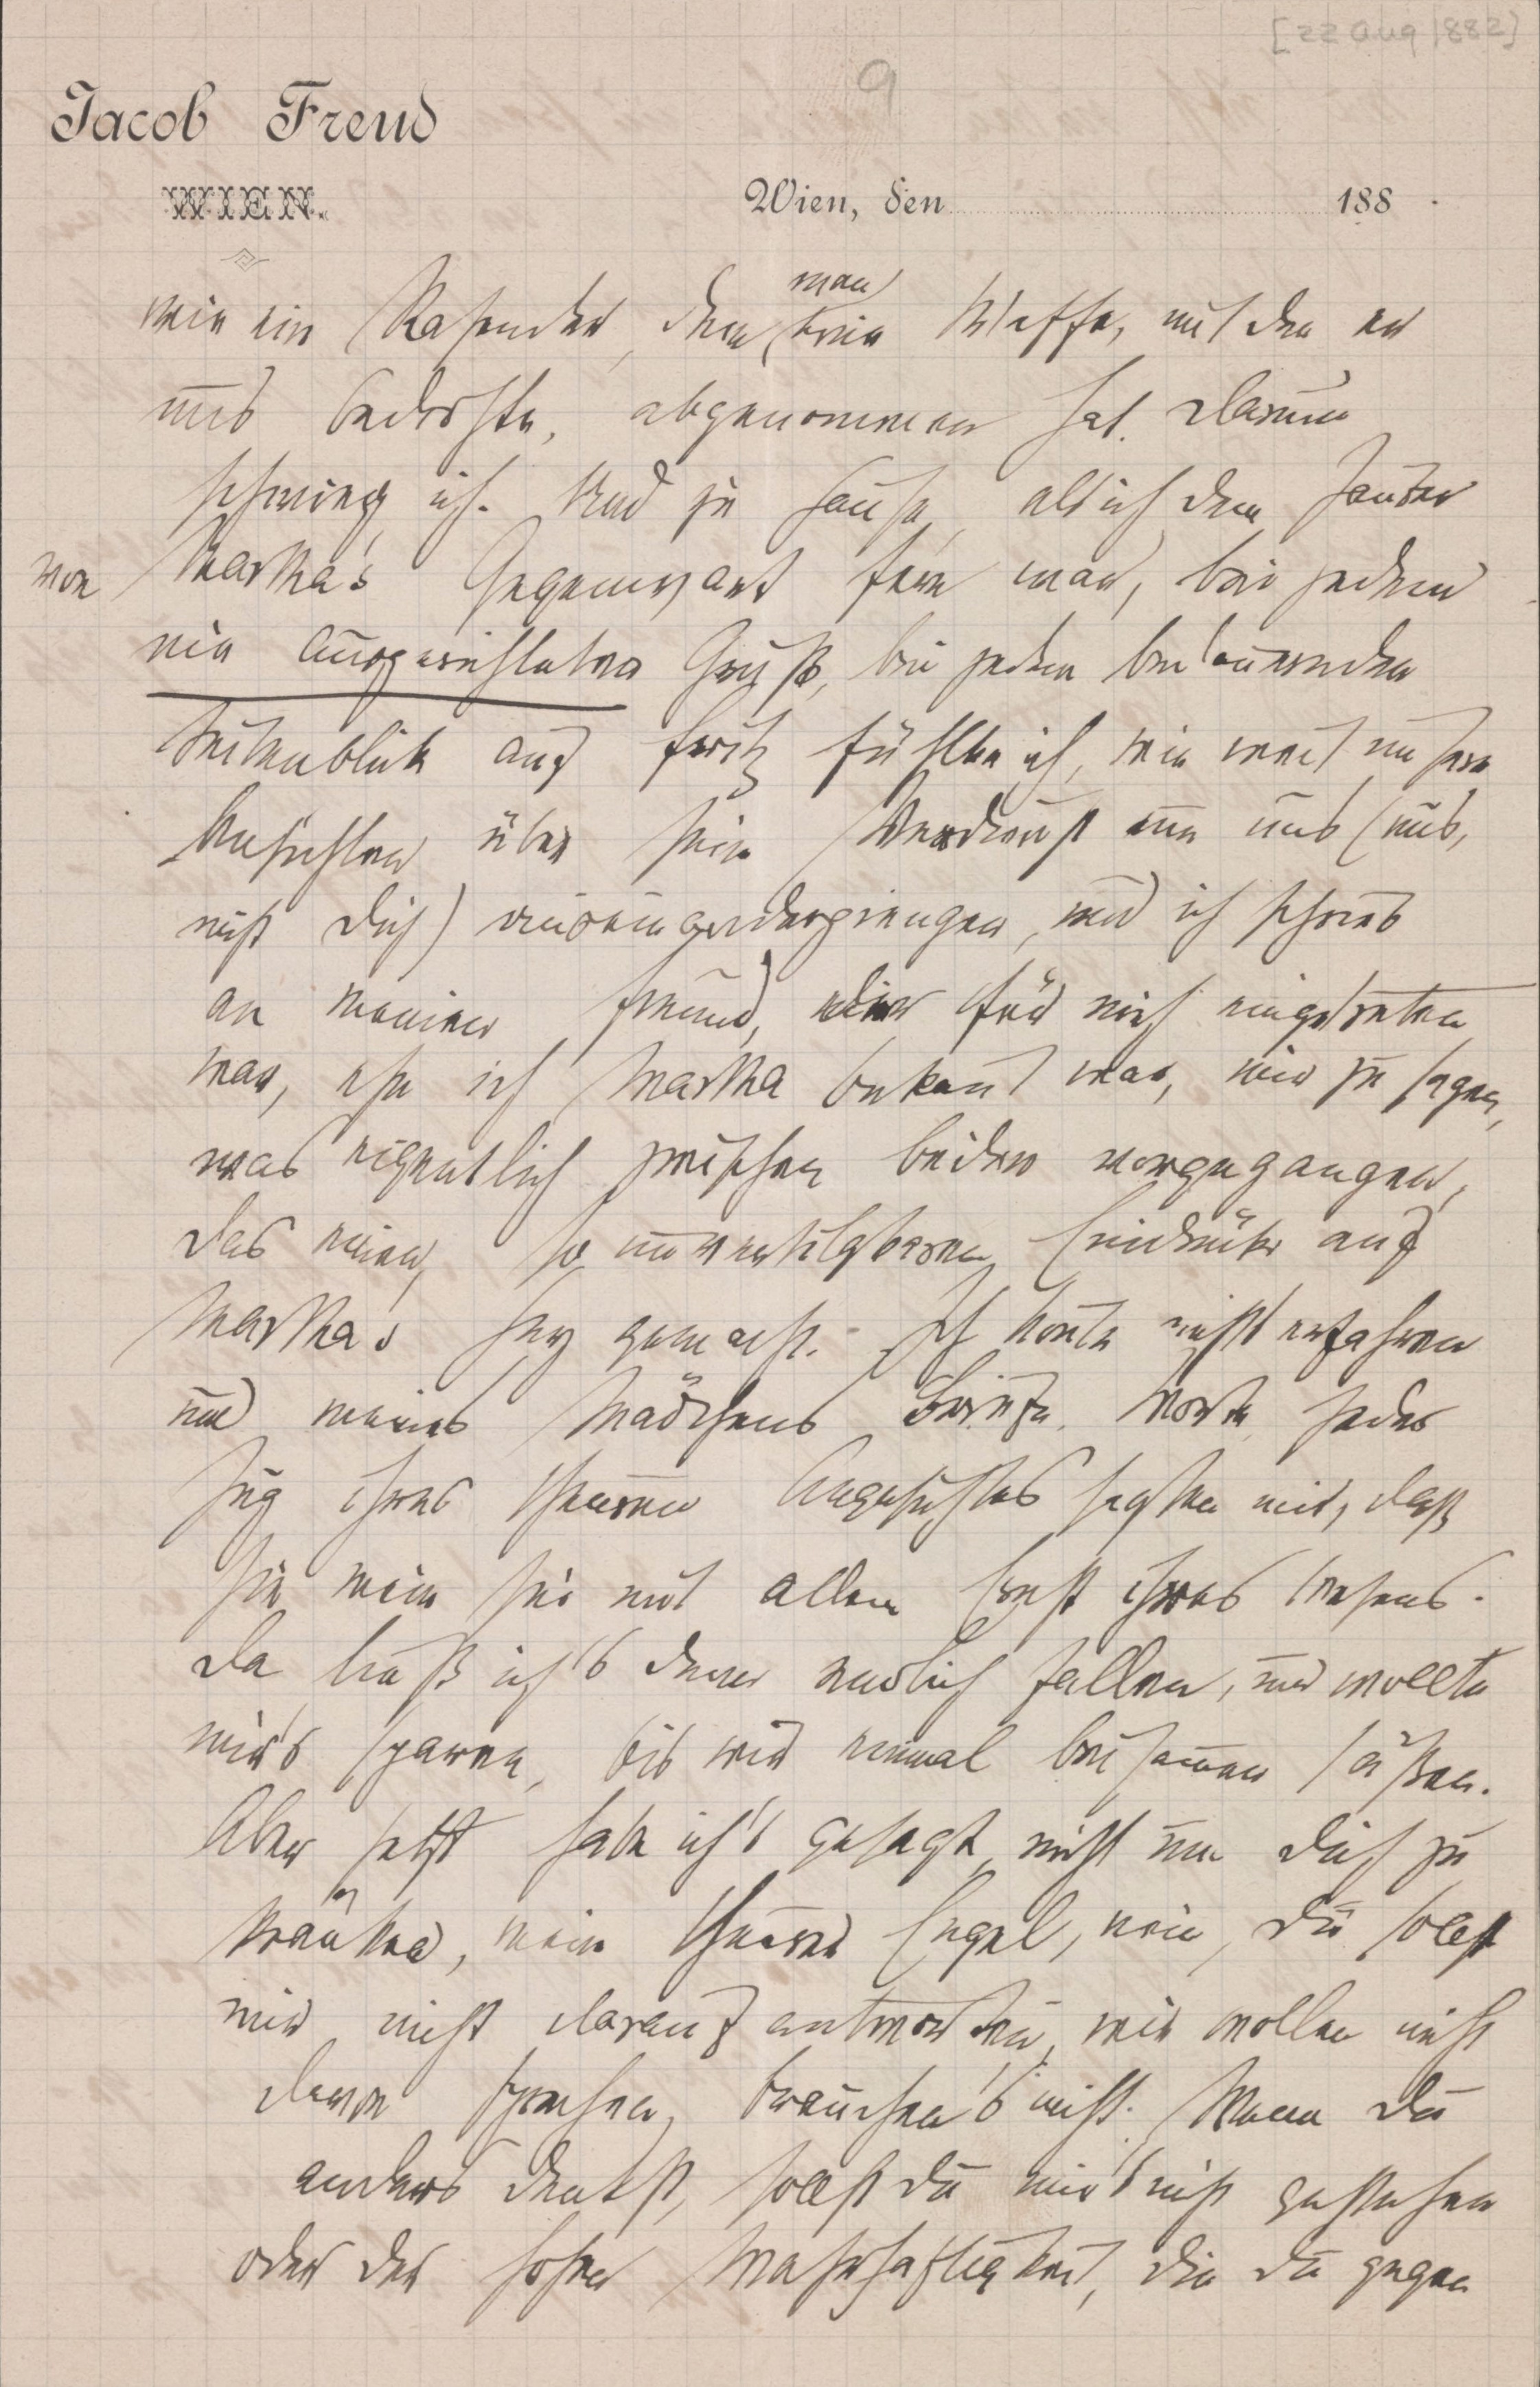 [22 Aug 1882]
9
Jacob Freud
WIEN.
Wien, den 188
wie ein Rasender, dem man seine Waffe, mit der er
uns bedrohte, abgenommen hat. Darum
schwieg ich. Und zu Hause, als ich dem Zauber
von Martha's Gegenwart fern war, bei jedem
nie ausgerichteten Gruß, bei jedem bedauernden
Seitenblick auf Fritz fühlte ich, wie weit unsere
Ansichten über sein Verdienst um uns (uns,
nicht Dich) auseinandergiengen, und ich schrieb
an meinen Freund, der für mich eingetreten
war, ehe ich Martha bekannt war, mir zu sagen,
was eigentlich zwischen beiden vorgegangen,
das einen so unvertilgbaren Eindruck auf
Martha's Herz gemacht. Ich konnte nichts erfahren
und meines Mädchens Briefe, Worte, jeder
Zug ihres theuren Angesichtes sagten mir, daß
sie mein sei mit allem Ernst ihres Wesens.
Da ließ ich's denn endlich fallen, und wollte
mir's sparen, bis wir einmal beisammen säßen.
Aber jetzt habe ich's gesagt, nicht um Dich zu
kränken, mein theurer Engel, nein, Du sollst
mir nicht darauf antworten, wir wollen nicht
davon sprechen, brauchen's nicht. Wenn Du
anders denkst, sollst Du mir's nicht gestehen
oder der hohen Wahrhaftigkeit, die Du gegen